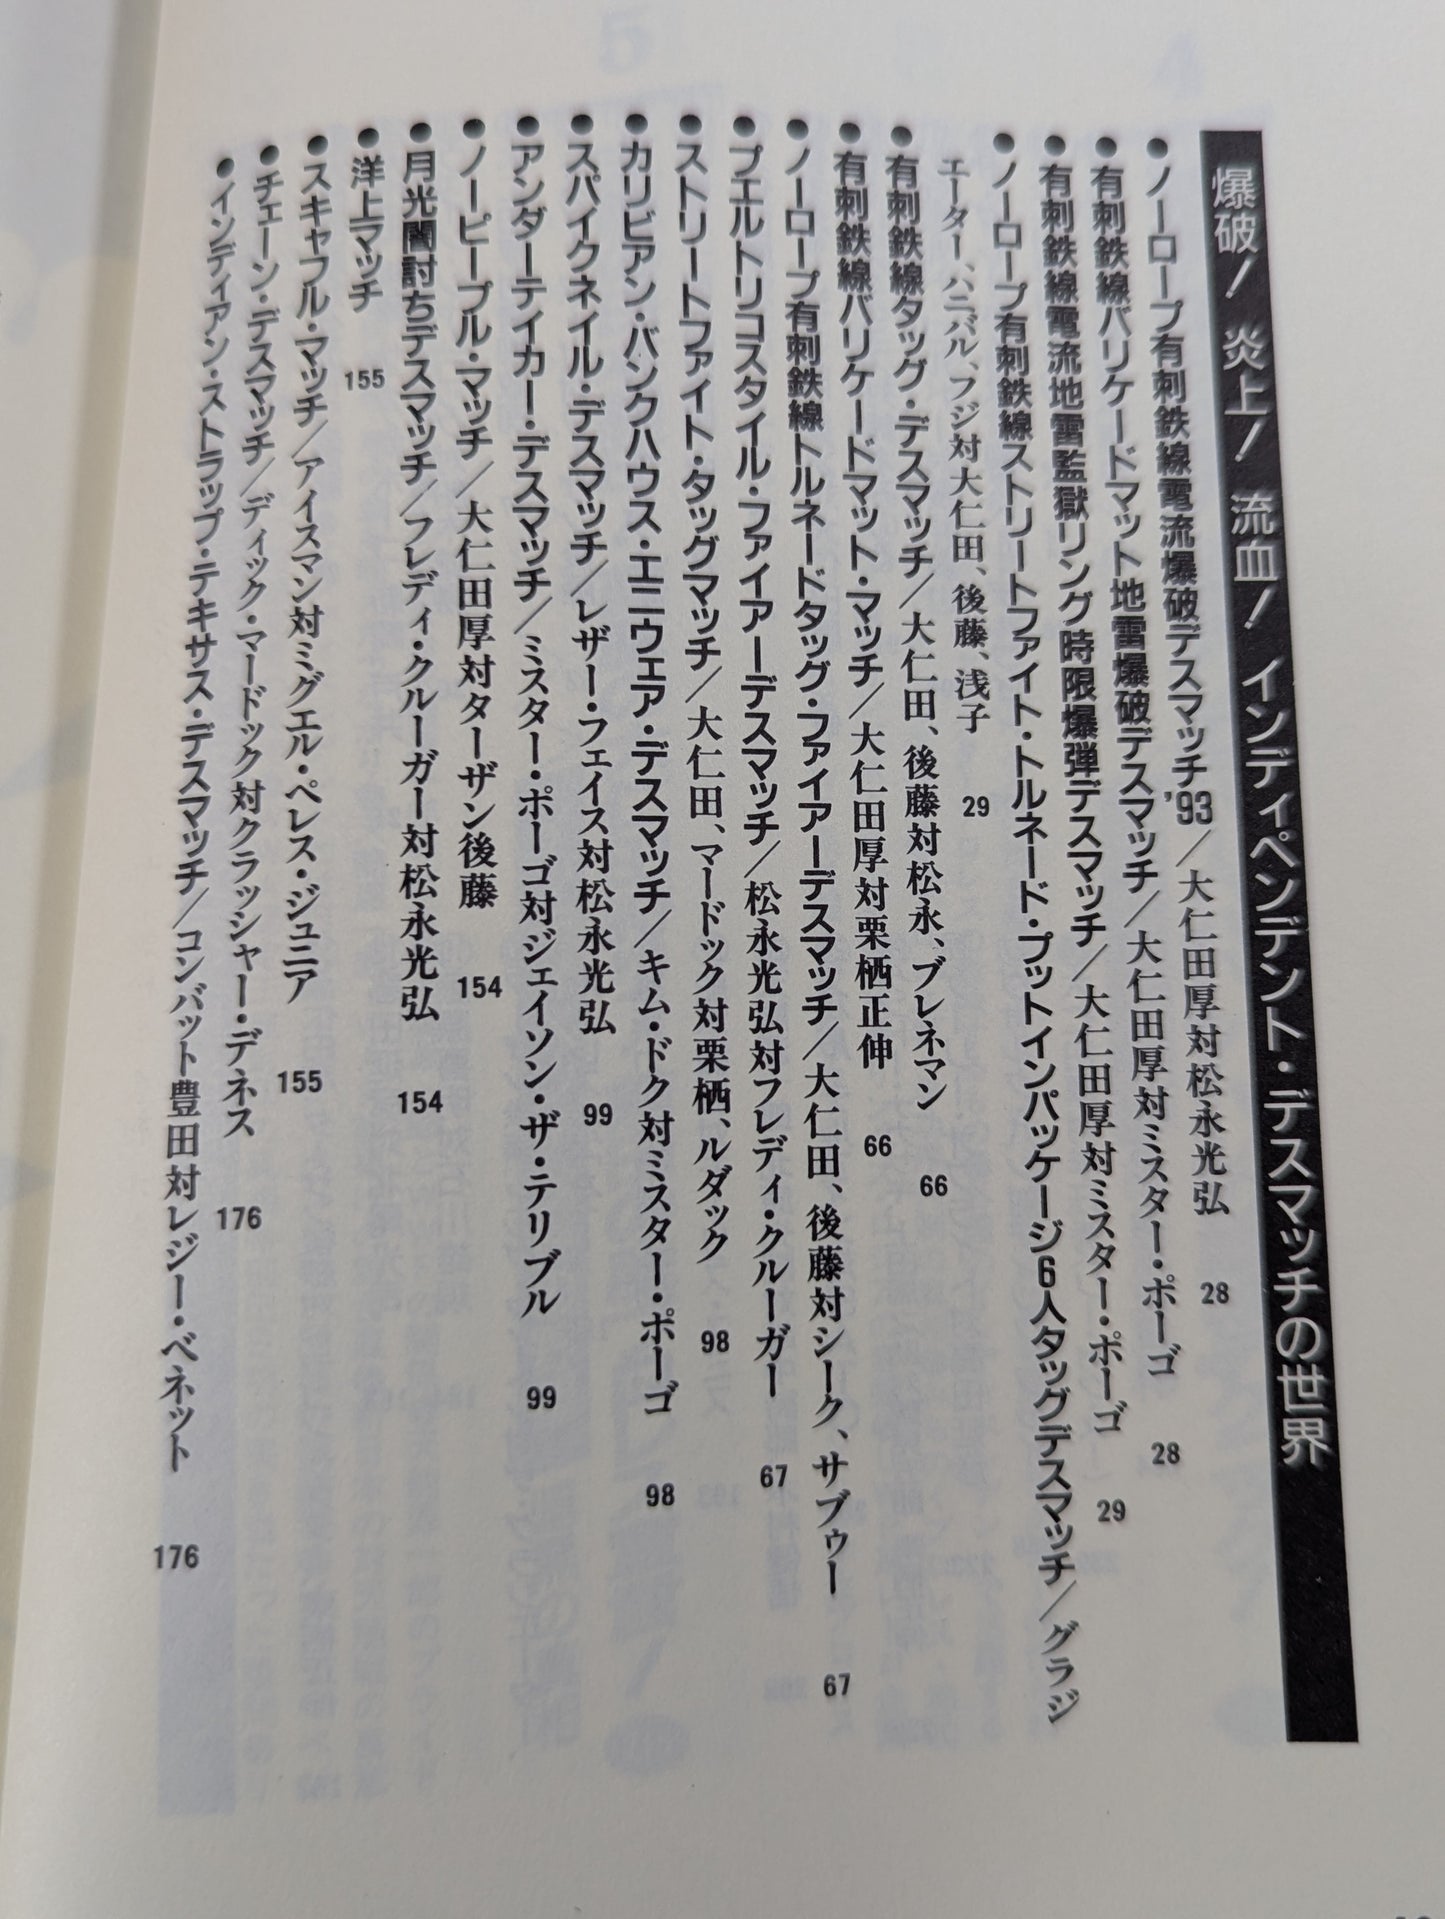 爆破！ 炎上！ 流血！ インディペンデント・デスマッチの世界
●ノーロープ有刺鉄線電流爆破デスマッチ'93／大仁田厚対松永光弘 28
●有刺鉄線バリケードマット地雷爆破デスマッチ／大仁田厚対ミスター・ポーゴ 28
●有刺鉄線電流地雷監獄リング時限爆弾デスマッチ／大仁田厚対ミスター・ポーゴ 29
●ノーロープ有刺鉄線ストリートファイト・トルネード・プットインパッケージ6人タッグデスマッチ／グラジ
エーター、ハニバル、フジ対大仁田、後藤、浅子 29
●有刺鉄線タッグ・デスマッチ／大仁田、後藤対松永、ブレネマン 66
●有刺鉄線バリケードマット・マッチ／大仁田厚対栗栖正伸 66
●ノーロープ有刺鉄線トルネードタッグ・ファイアーデスマッチ／大仁田、後藤対シーク、サブゥー 67
●プエルトリコスタイル・ファイアーデスマッチ／松永光弘対フレディ・クルーガー 67
●ストリートファイト・タッグマッチ／大仁田、マードック対栗栖、ルダック 98
●カリビアン・バンクハウス・エニウェア・デスマッチ／キム・ドク対ミスター・ポーゴ 98
●スパイクネイル・デスマッチ／レザー・フェイス対松永光弘 99
●アンダーテイカー・デスマッチ／ミスター・ポーゴ対ジェイソン・ザ・テリブル 99
●ノーピープル・マッチ／大仁田厚対ターザン後藤 154
●月光闇討ちデスマッチ／フレディ・クルーガー対松永光弘 154
●洋上マッチ 155
●スキャフル・マッチ／アイスマン対ミグエル・ペレス・ジュニア 155
●チェーン・デスマッチ／ディック・マードック対クラッシャー・デネス 176
●インディアン・ストラップ・テキサス・デスマッチ／コンバット豊田対レジー・ベネット 176